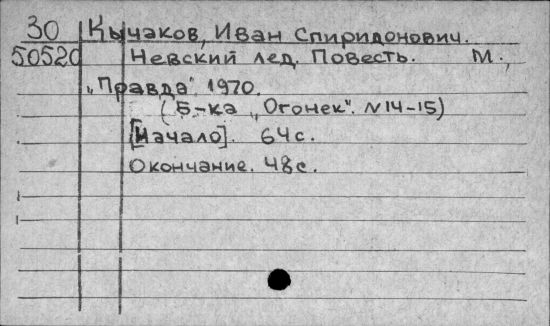 30 Кычаков, Иван Спиридонович.
50520 Невский лед. Повесть. М.,
„Правда", 1970.
(Б-ка „Огонек". №14-15)
[Начало]. 64с.
Окончание. 48с.